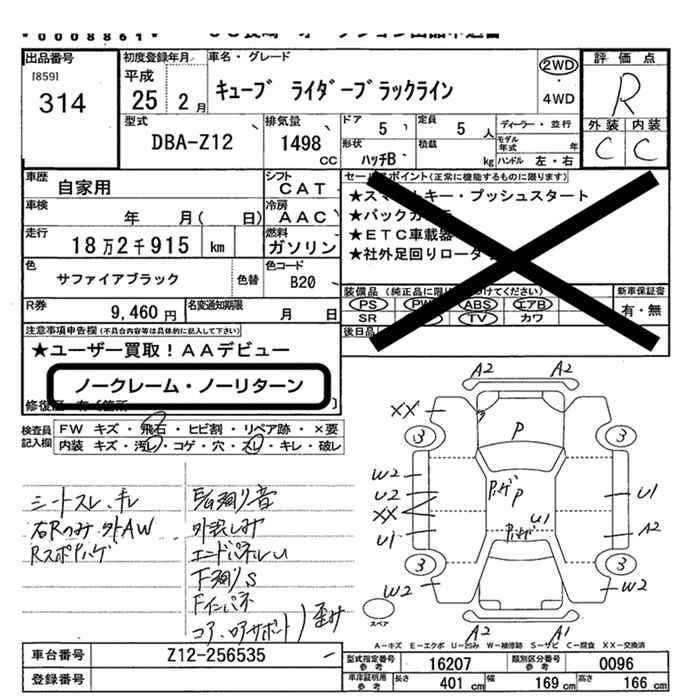 *0008861*
出品番号
[859]
314
初度登録年月
平成
25 2月
車名・グレード
キューブ ライダーブラックライン
2WD
・
4WD
評価点
R
外装 内装
C C
型式
DBA-Z12
排気量
1498
CC
ドア
5
定員
5 人
ディーラー・並行
モデル年式 年
形状
ハッチB
積載
kg
ハンドル 左・右
車歴
自家用
シフト
CAT
車検
年 月( 日)
冷房
AAC
走行
18万2千915 km
燃料
ガソリン
色
サファイアブラック
色替
色コード
B20
R券
9,460 円
名変通知期限
月 日
セールスポイント(正常に機能するものに限ります)
★スマートキー・プッシュスタート
★バックカメラ
★ETC車載器
★社外足回りローダウン
装備品(純正品に限り○をつけてください)
PS PW ABS エアB
SR TV カワ
後日品
新車保証書
有・無
注意事項申告欄(不具合等は具体的に記入して下さい)
★ユーザー買取!AAデビュー
ノークレーム・ノーリターン
修復歴
検査員記入欄
FW キズ・飛石・ヒビ割・リペア跡・×要
内装 キズ・汚レ・コゲ・穴・スレ・キレ・破レ
シートスレ、キレ
右Rのみ外AW
Rスポハゲ
外装しみ
エンドパネルU
下廻りS
Fインパネ
コア、ロアサポート)歪み
A2 A2
XX
3 3
P
W2
U2
XX
U1
P
U1
U1
A2
3 3
W2 W2
A2 A1
スペア
A-キズ E-エクボ U-凹み W-補修跡 S-サビ C-腐食 XX-交換済
車台番号
Z12-256535
登録番号
型式指定番号 参考
16207
類別区分番号 参考
0096
車庫証明用 参考
長さ 401 cm
幅 169 cm
高さ 166 cm